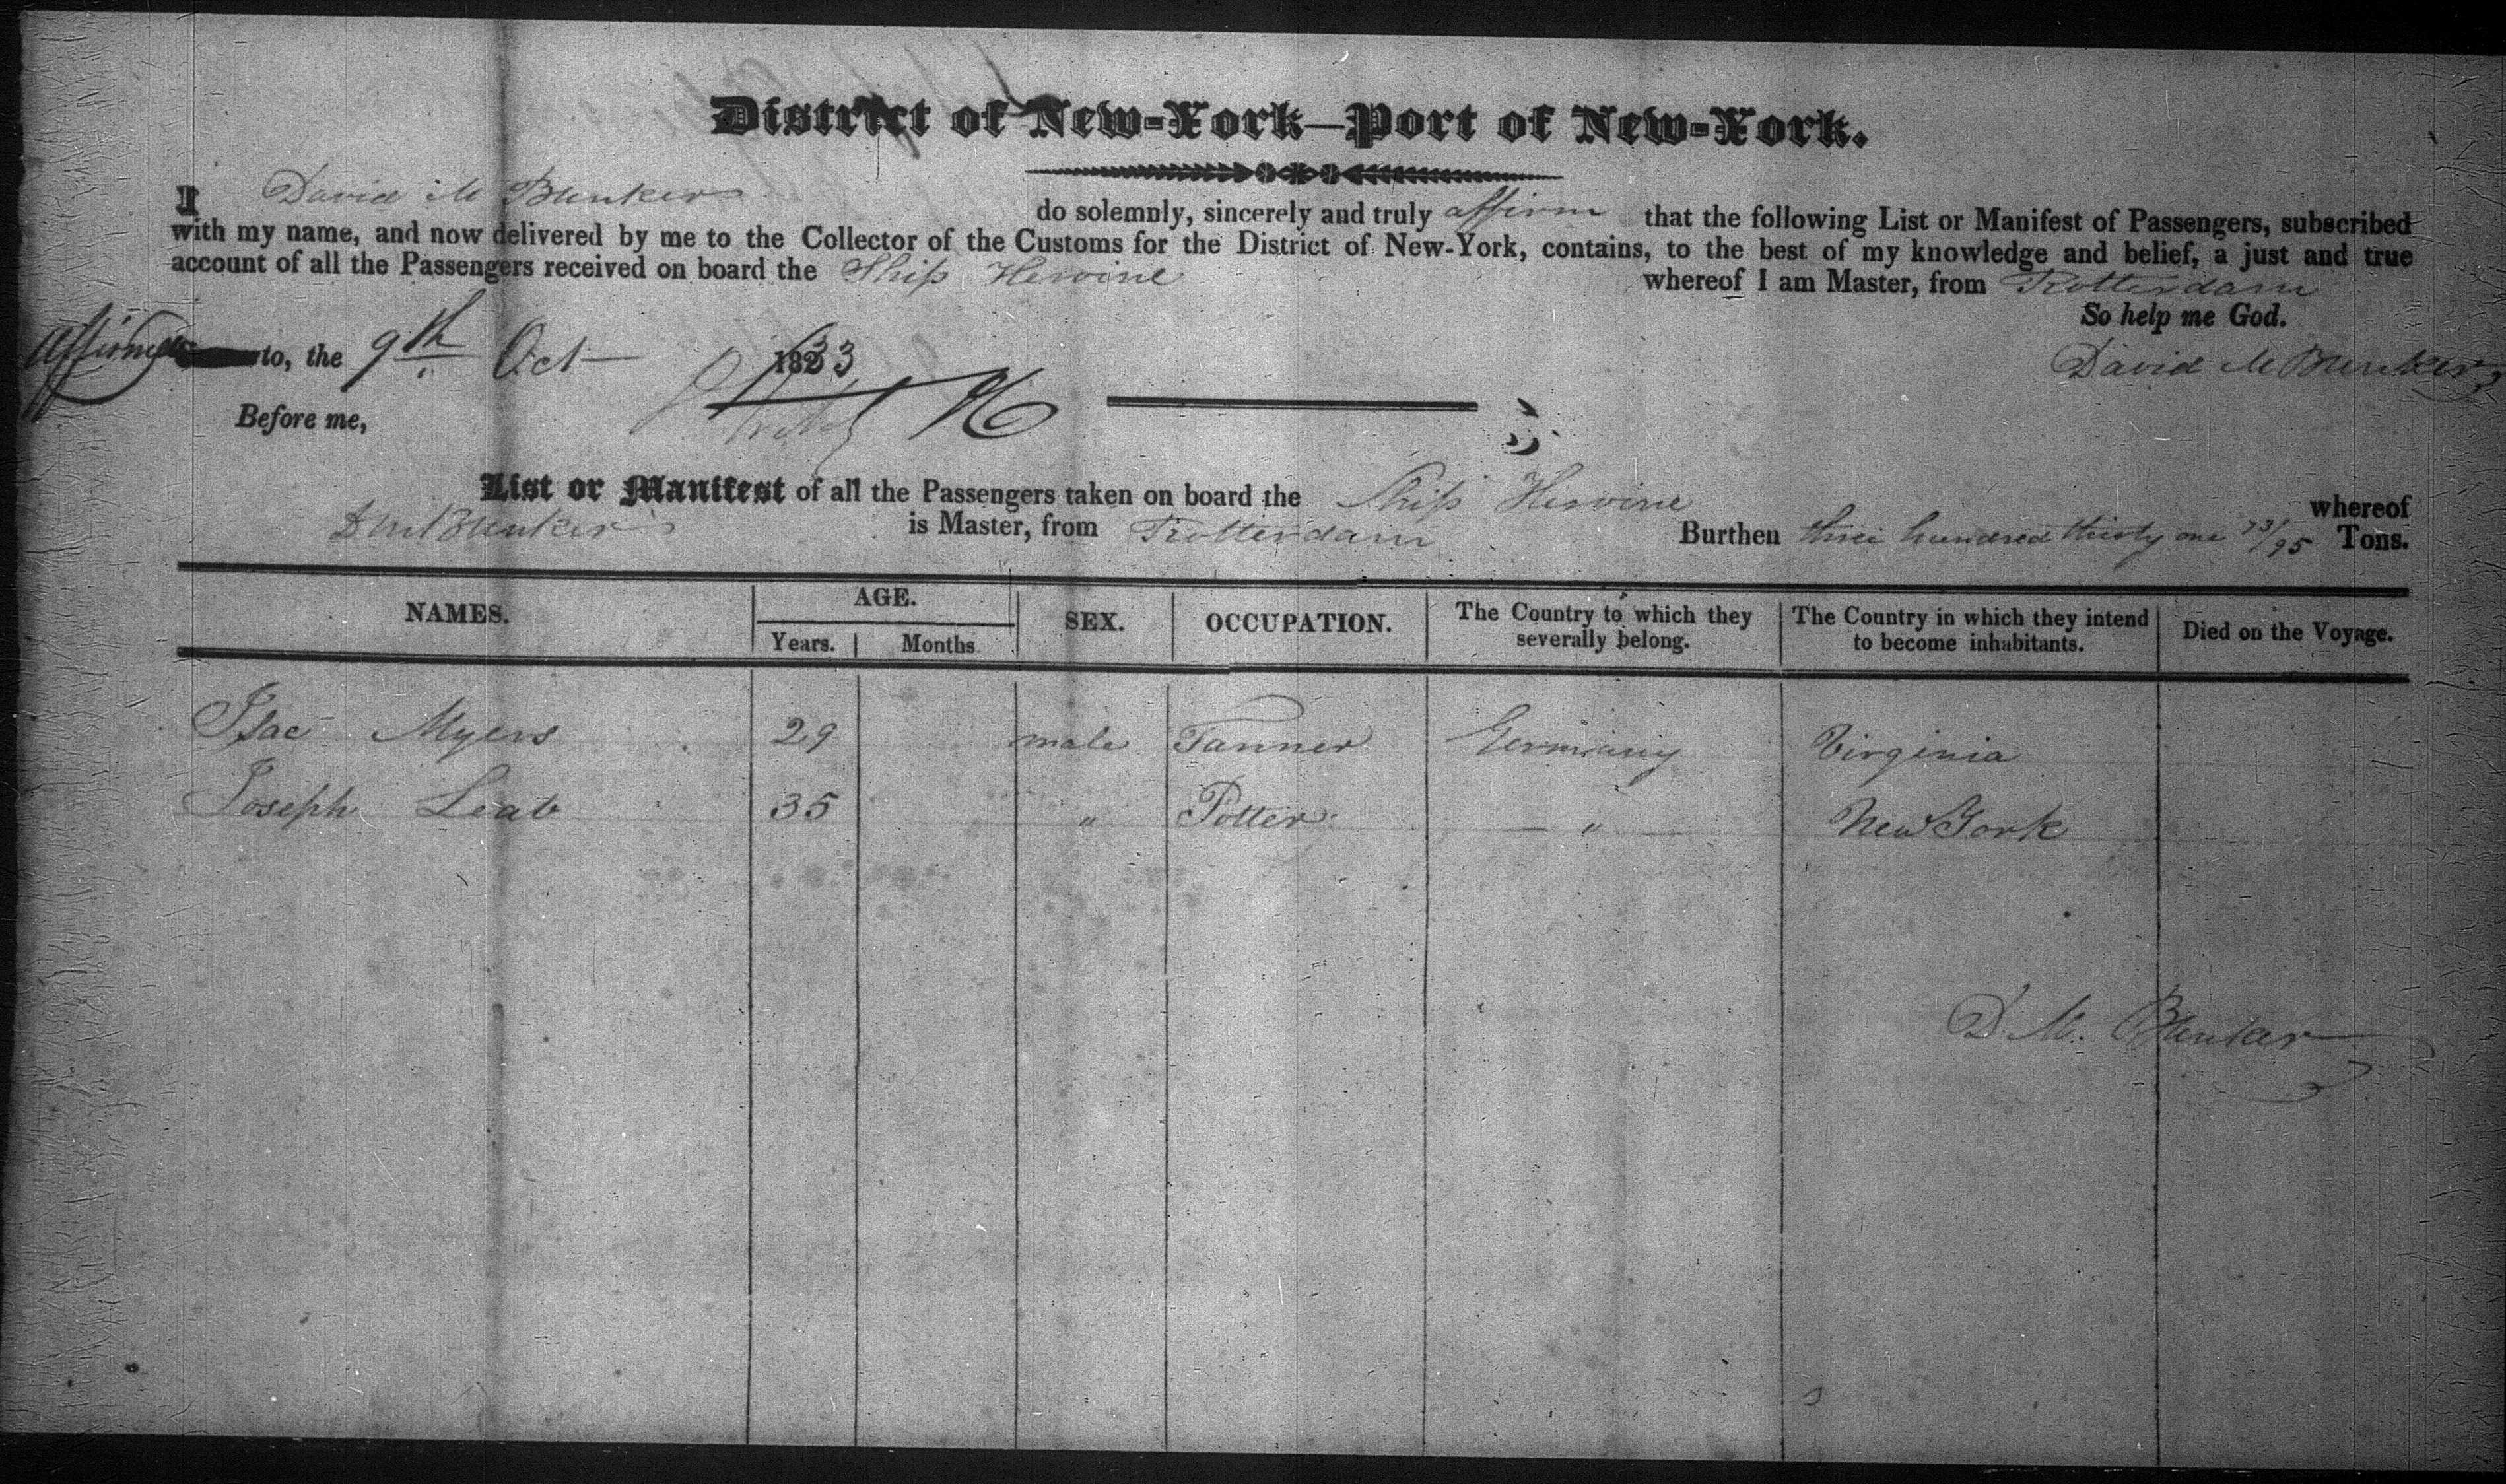 District of New-York—Port of New-York.
I David M Bunker do solemnly, sincerely and truly affirm that the following List or Manifest of Passengers, subscribed
with my name, and now delivered by me to the Collector of the Customs for the District of New-York, contains, to the best of my knowledge and belief, a just and true
account of all the Passengers received on board the Ship Heroine whereof I am Master, from Rotterdam
So help me God.
Affirmed to, the 9th Oct 1833
David M Bunker
Before me,
List or Manifest of all the Passengers taken on board the Ship Heroine whereof
D M Bunker is Master, from Rotterdam Burthen three hundred thirty one 73/95 Tons.
NAMES. AGE. SEX. OCCUPATION. The Country to which they severally belong. The Country in which they intend to become inhabitants. Died on the Voyage.
Years. Months.
Isac Myers 29 male Tanner Germany Virginia
Joseph Leab 35 " Potter — " — New York
D M. Bunker